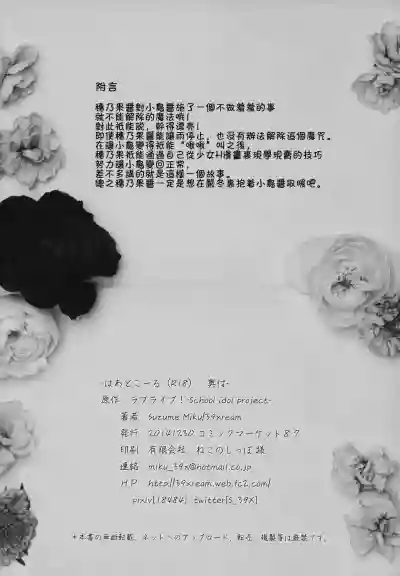 附言
穗乃果醬對小鳥醬施了一個不做羞羞的事
就不能解除的魔法哦!
對此祇能說,幹得漂亮!
即使穗乃果醬能讓雨停止,也没有辦法解除這個魔咒。
在讓小鳥變得祇能“啾啾”叫之後,
穗乃果祇能通過自己從少女H漫畫裏現學現賣的技巧
努力讓小鳥變回正常,
差不多講的就是這樣一個故事。
總之穗乃果醬一定是想在嚴冬裏抱着小鳥醬取暖吧。
-はあとこーる (R18) 奥付-
原作 ラブライブ! -School idol project-
著者 Suzume Miku/39xream
発行 20141230 コミックマーケット87
印刷 有限会社 ねこのしっぽ様
連絡 miku_39x@hotmail.co.jp
HP http://39xream.web.fc2.com/
pixiv[18484] twitter[S_39X]
*本書の無断転載、ネットへのアップロード、転売、複製等は厳禁です。